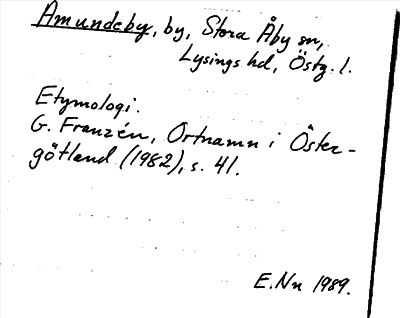 Amundeby, by, Stora Åby sn,
Lysings hd, Östg. l.
Etymologi.
G. Franzén, Ortnamn i Öster-
götland (1982), s. 41.
E. Nn 1989.